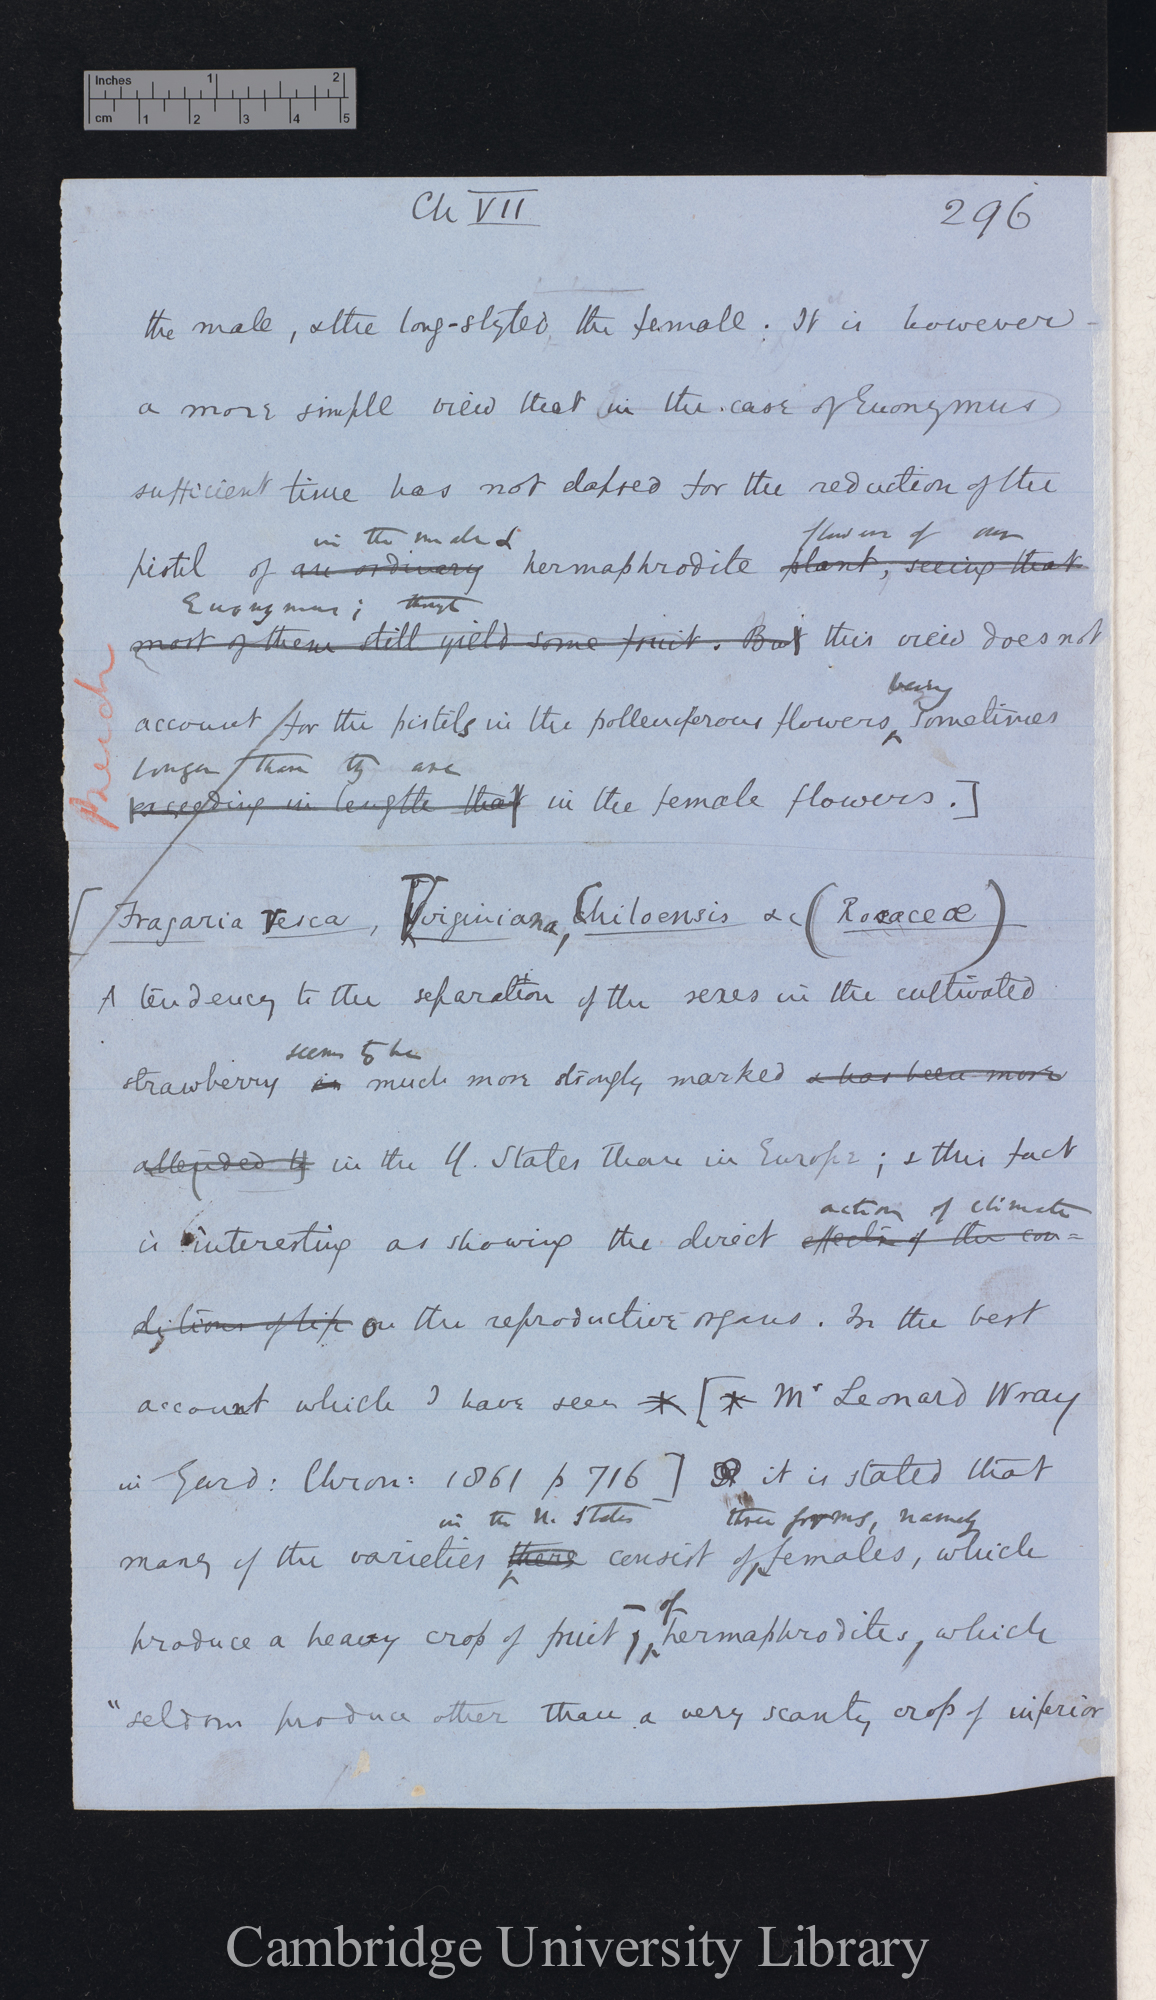 Inches 1 2
cm 1 2 3 4 5
Ch VII
296
the male, & the long-styled, the female. It is however
a more simple view that in the case of Euonymus
sufficient time has not elapsed for the reduction of the
in the male & flowers of our
pistil of an ordinary hermaphrodite plant, seeing that
Euonymus; though
most of them still yield some fruit. But this view does not
being
account for the pistils in the polleniferous flowers, sometimes
longer than they are
exceeding in length that in the female flowers.]
[Fragaria vesca, Virginiana, Chiloensis &c (Rosaceæ)
A tendency to the separation of the sexes in the cultivated
seems to be
strawberry is much more strongly marked & has been more
attended to in the U. States than in Europe; & this fact
action of climate
is interesting as showing the direct effects of the con=
ditions of life on the reproductive organs. In the best
account which I have seen * [* Mr Leonard Wray
in Gard: Chron: 1861 p 716] it is stated that
in the U. States three forms, namely
many of the varieties there consist of females, which
of
produce a heavy crop of fruit, – hermaphrodites, which
"seldom produce other than a very scanty crop of inferior
Cambridge University Library